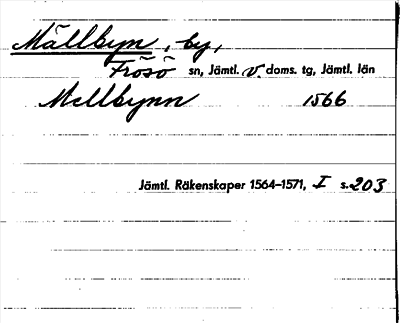 Mällbyn, by,
Frösö sn, Jämtl. v. doms. tg, Jämtl. län
Mellbynn 1566
Jämtl. Räkenskaper 1564–1571, I s. 203